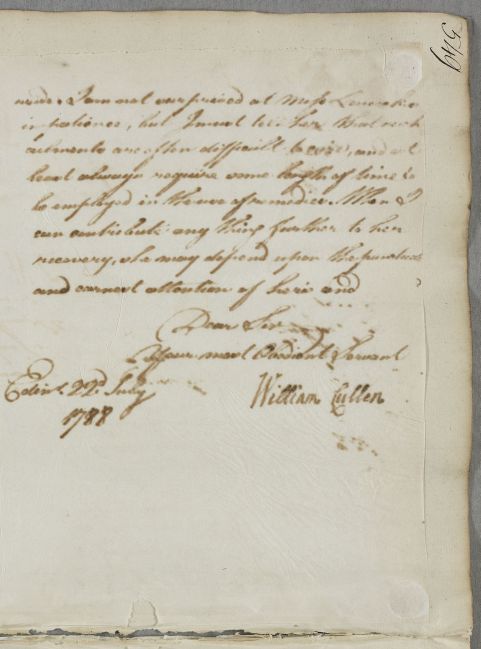 5749
I am not surprised at Miss
impatience, but I must tell her that such
ailments are often difficult to cure, and at
least always require some length of time to
be employed in the use of remedies. When I
can contribute any thing further to her
recovery, she may depend upon the punctual
and earnest attention of hers and
Dear Sir
Your most Obedient Servant
Edinr. 22d July
William Cullen
1788